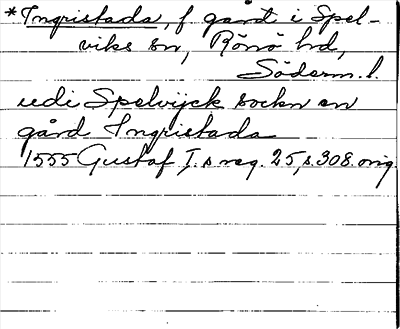 *Ingristada, f. gård i Spel-
viks sn, Rönö hd,
Söderm. l.
udi Spelvijck sockn en
gård Ingristada
1555 Gustaf I.s reg. 25, s. 308. orig.